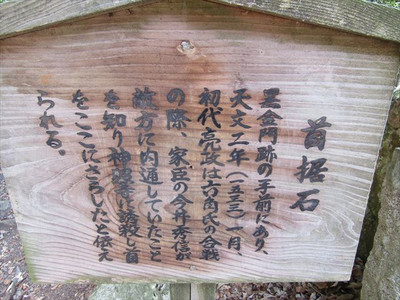 首据石
黒金門跡の手前にあり、
天文二年（一五三三）一月、
初代亮政は六角氏の合戦
の際、家臣の今井秀信が
敵方に内通していたこと
を知り神照寺に誘殺し首
をここにさらしたと伝え
られる。